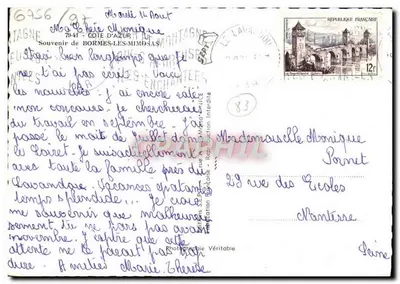 6756
Mardi 11 Août
Ma Chère Monique
7941 - COTE D'AZUR
Souvenir de BORMES-LES-MIMOSAS
Voici bien longtemps que je
ne t'ai pas écrit. Voici
les nouvelles : j'ai encore raté
mon concours. Je chercherai
du travail en septembre. J'ai
passé le mois de Juillet dans
le Loiret. Je suis actuellement
avec toute la famille près du
Lavandou. Vacances épatantes
temps splendide... Je crois
me souvenir que malheureu
sement, tu ne pars pas avant
novembre. J'espère que cette
attente ne te paraît pas trop
dure. Amitiés Marie Thérèse
REPUBLIQUE FRANÇAISE
12F
83
Mademoiselle Monique
29 rue des Ecoles
Nanterre
Seine
Photographie Véritable
Reproduction Interdite